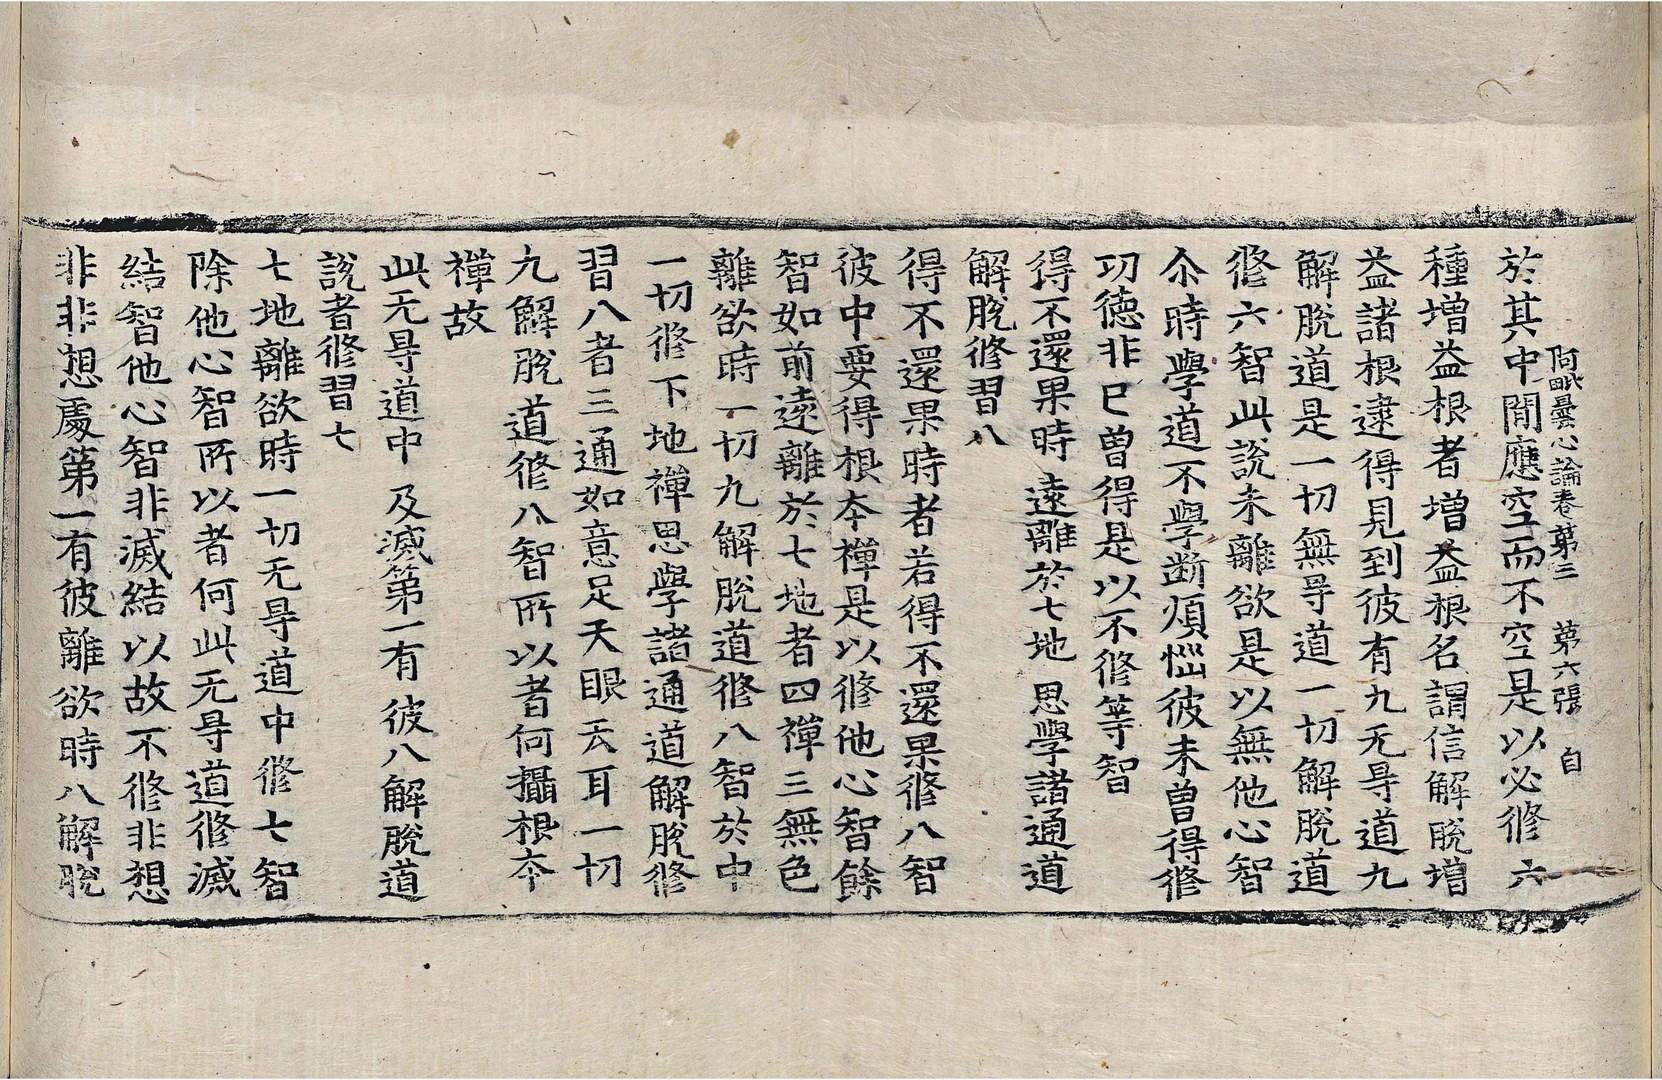 阿毗曇心論卷第三　第六張　自
於其中間應空而不空是以必修六
種增益根者增益根名謂信解脫增
益諸根逮得見到彼有九无㝵道九
解脫道是一切無㝵道一切解脫道
修六智此說未離欲是以無他心智
尒時學道不學断煩惱彼未曾得修
功德非已曾得是以不修等智
得不還果時　遠離於七地　思學諸通道
解脫修習八
得不還果時者若得不還果修八智
彼中要得根夲禪是以修他心智餘
智如前遠離於七地者四禪三無色
離欲時一切九解脫道修八智於中
一切修下地禪思學諸通道解脫修
習八者三通如意足天眼天耳一切
九解脫道修八智所以者何攝根夲
禪故
此无㝵道中　及滅第一有　彼八解脫道
說者修習七
七地離欲時一切无㝵道中修七智
除他心智所以者何此无㝵道修滅
結智他心智非滅結以故不修非想
非非想處第一有彼離欲時八解脫